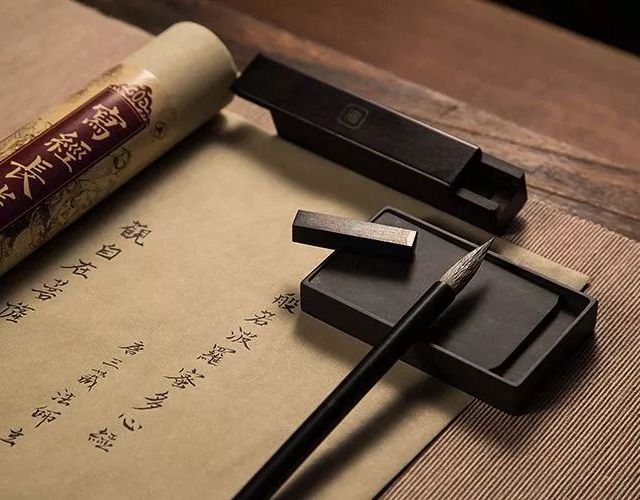 般若波羅蜜多心經
唐三藏法師玄
觀自在菩薩
寫經長